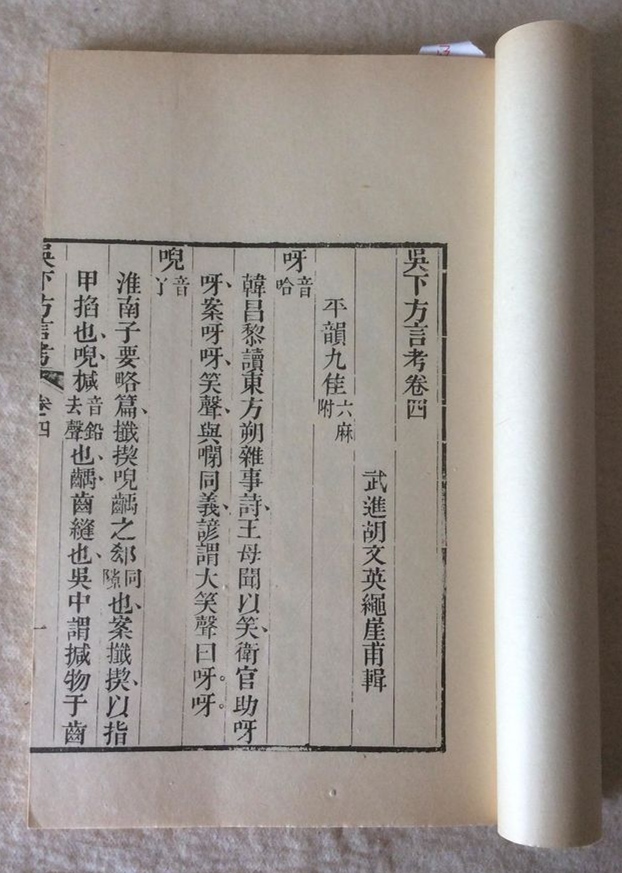 吳下方言考卷四
武進胡文英繩崖甫輯
平韻九佳六麻附
呀音哈
韓昌黎讀東方朔雜事詩、王母聞以笑、衛官助呀
呀、案呀呀、笑聲、與㗿同義、諺謂大笑聲曰呀。呀。
唲音丫
淮南子要略篇、攕揳唲齵之郄同隙也、案攕揳、以指
甲掐也、唲、揻音鉛去聲也、齵、齒縫也、吳中謂揻物于齒
吳下方言考 卷四 一